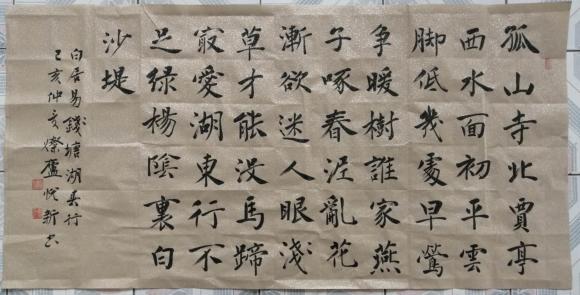 孤山寺北賈亭
西水面初平雲
脚低幾處早鶯
争暖樹誰家燕
子啄春泥亂花
漸欲迷人眼淺
草才能没馬蹄
㝡愛湖東行不
足緑楊陰裏白
沙堤
白居易錢塘湖春行
己亥仲 廬悦新书